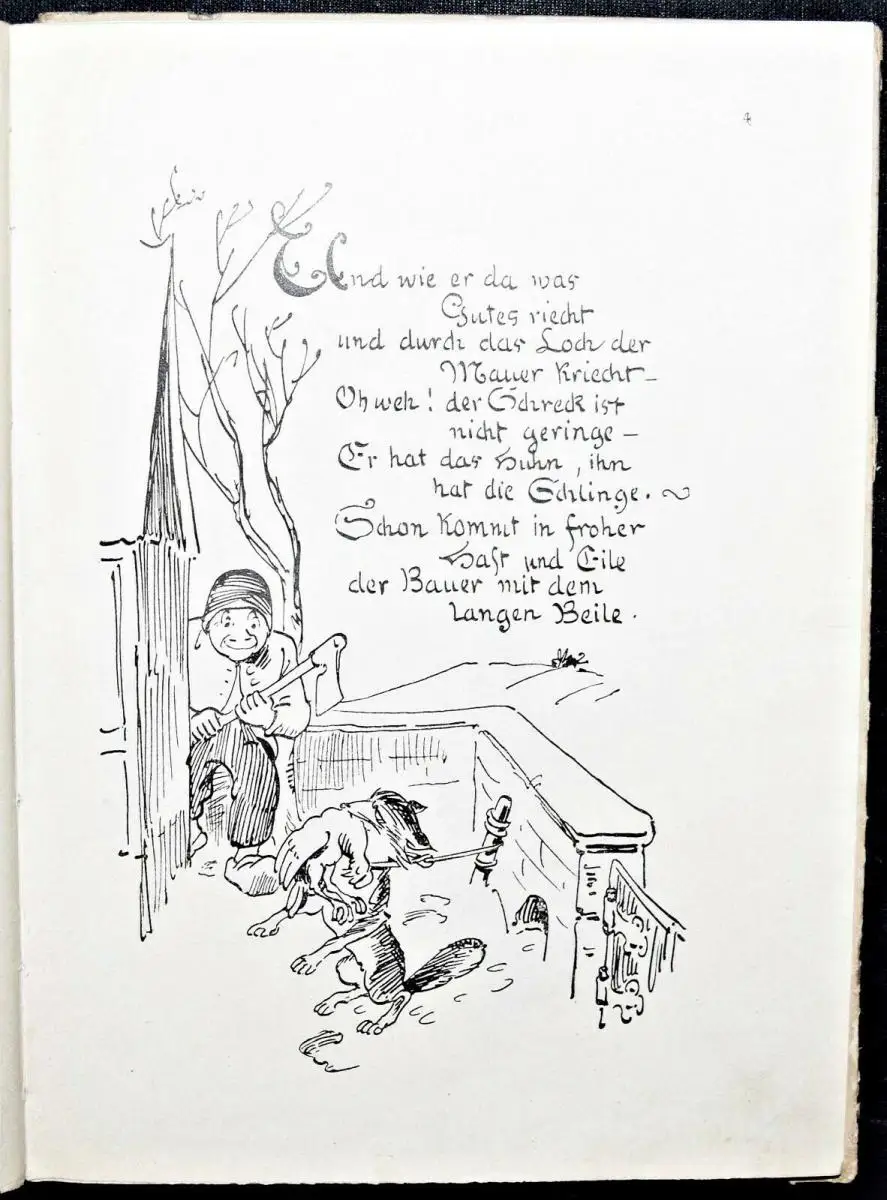 4
Und wie er da was
Gutes riecht
und durch das Loch der
Mauer kriecht –
Oh weh! der Schreck ist
nicht geringe –
Er hat das Huhn, ihn
hat die Schlinge.
Schon kommt in froher
Hast und Eile
der Bauer mit dem
langen Beile.